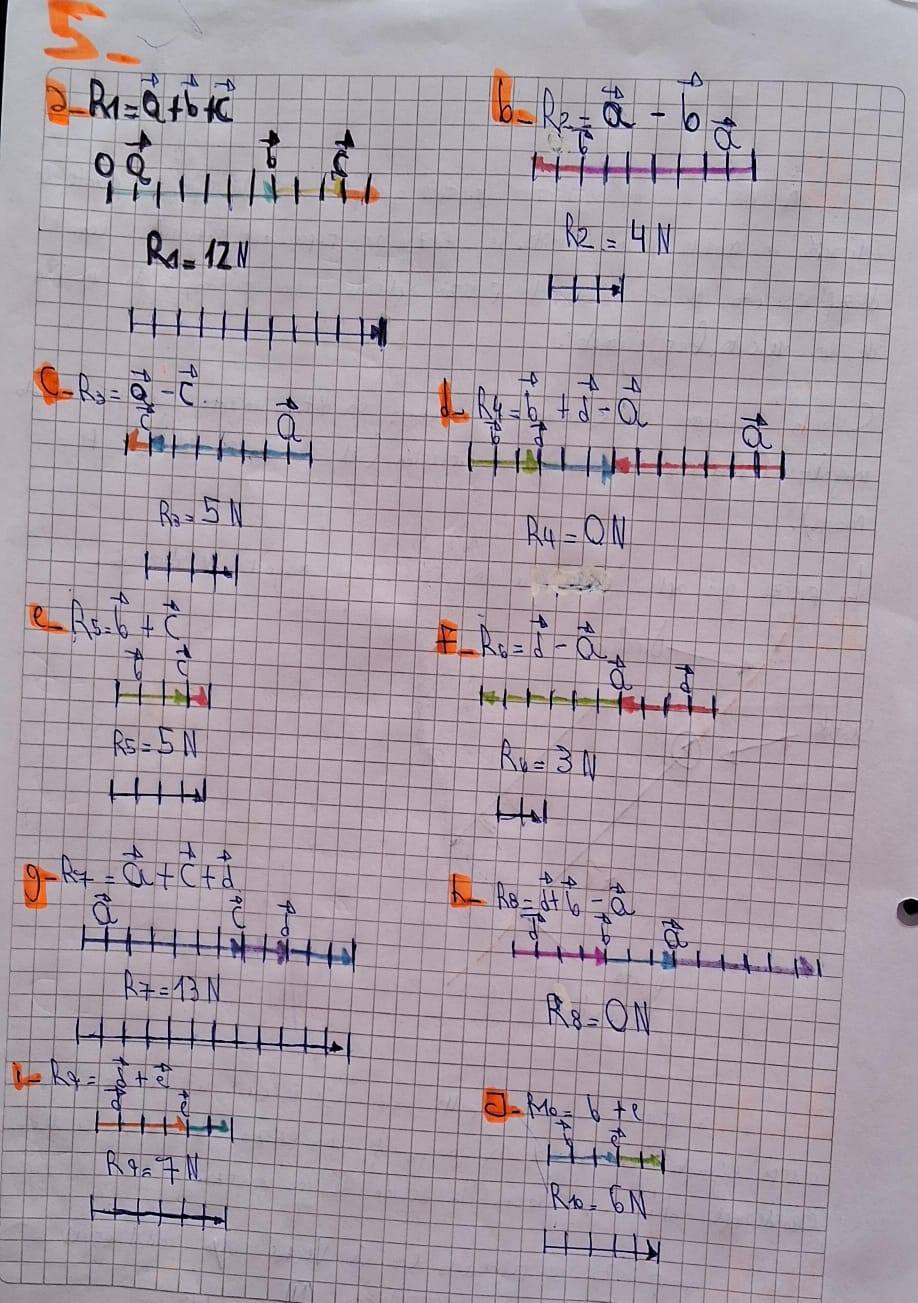 5_
a_ R1=a+b+c
0 a b c
R1=12N
b_ R2=a - b
b a
R2 = 4 N
c_ R3= a - c
c a
R3= 5 N
d_ R4=b + d - a
b d a
R4 = 0N
e_ R5=b + c
b c
R5=5 N
F_ R6= d - a
a d
R6= 3 N
g_ R7 = a + c + d
a c d
R7=13N
h_ R8=d+b - a
d b a
R8=0N
i_ R9= d + e
d e
R9= 7 N
J_ R10= b +e
b e
R10= 6N